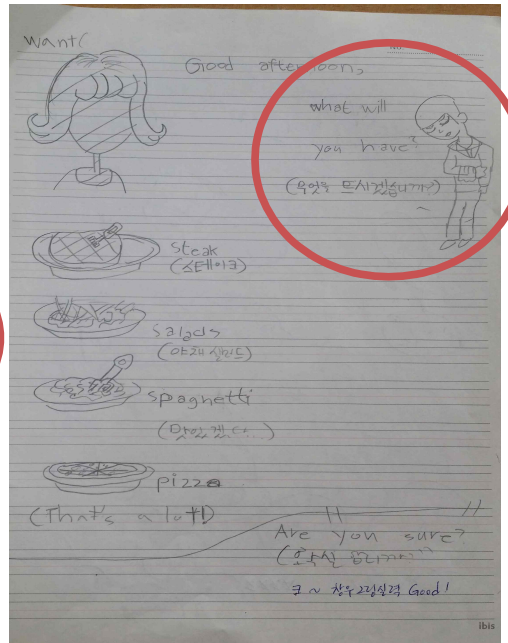 want(
Good afternoon,
what will
you have?
(무엇을 드시겠습니까?)
~
steak
(스테이크)
salads
(야채 샐러드)
spaghetti
(맛있겠다...)
pizza
(That's a lot!)
Are you sure?
크~ 창우 그림실력 Good!
ibis